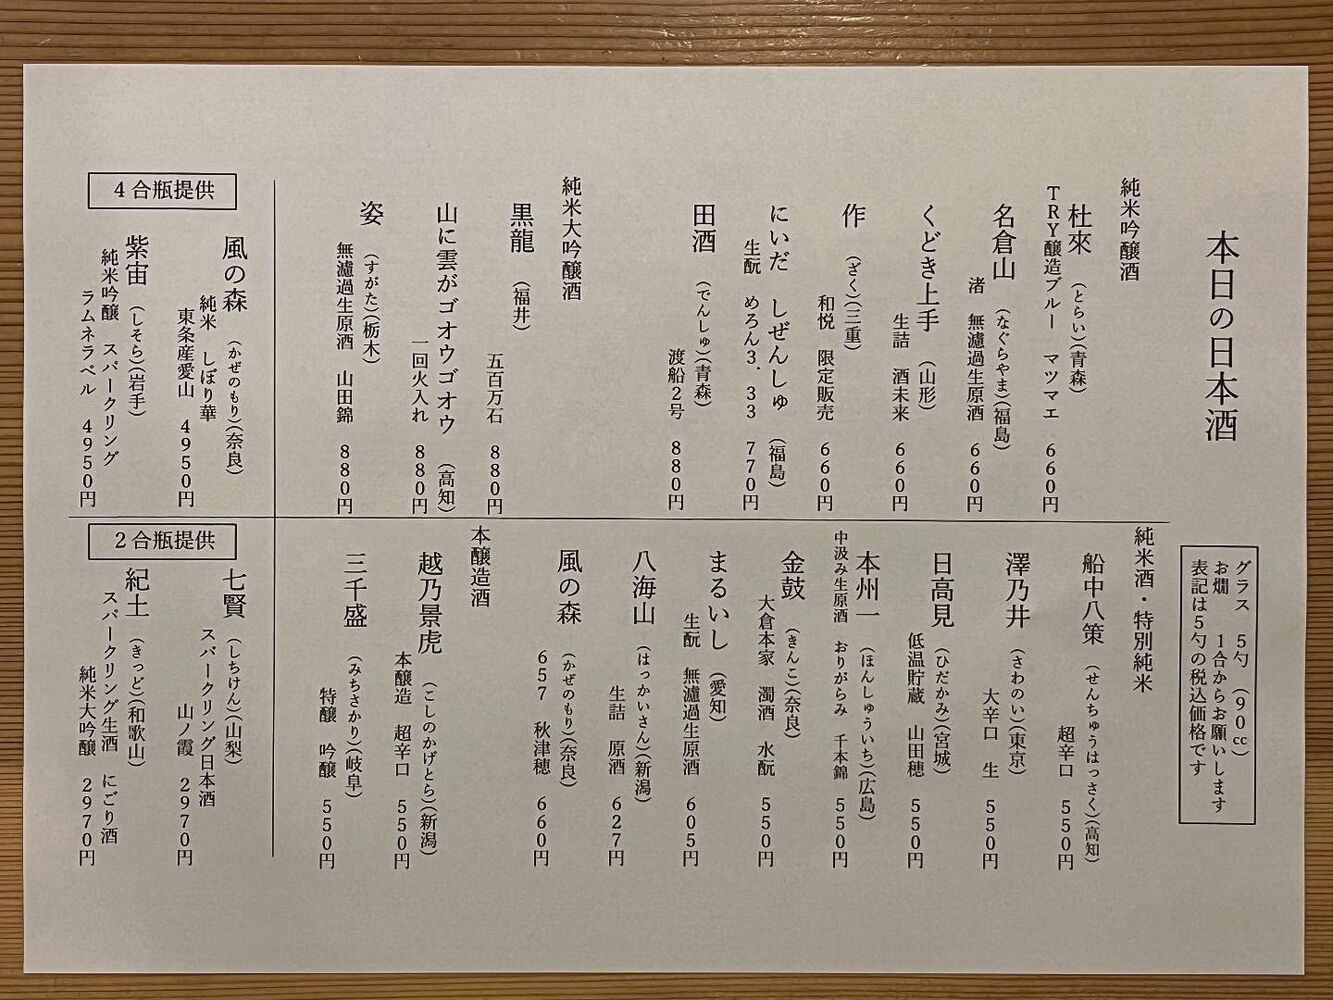 本日の日本酒
グラス　5勺　(90cc)
お燗　1合からお願いします
表記は5勺の税込価格です
純米吟醸酒
杜來　(とらい)(青森)
TRY醸造ブルー　マツマエ　660円
名倉山　(なぐらやま)(福島)
渚　無濾過生原酒　660円
くどき上手　(山形)
生詰　酒未来　660円
作　(ざく)(三重)
和悦　限定販売　660円
にいだ　しぜんしゅ　(福島)
生酛　めろん3.33　770円
田酒　(でんしゅ)(青森)
渡船2号　880円
純米大吟醸酒
黒龍　(福井)
五百万石　880円
山に雲がゴオウゴオウ　(高知)
一回火入れ　880円
姿　(すがた)(栃木)
無濾過生原酒　山田錦　880円
純米酒・特別純米
船中八策　(せんちゅうはっさく)(高知)
超辛口　550円
澤乃井　(さわのい)(東京)
大辛口　生　550円
日高見　(ひだかみ)(宮城)
低温貯蔵　山田穂　550円
本州一　(ほんしゅういち)(広島)
中汲み生原酒　おりがらみ　千本錦　550円
金鼓　(きんこ)(奈良)
大倉本家　濁酒　水酛　550円
まるいし　(愛知)
生酛　無濾過生原酒　605円
八海山　(はっかいさん)(新潟)
生詰　原酒　627円
風の森　(かぜのもり)(奈良)
657　秋津穂　660円
本醸造酒
越乃景虎　(こしのかげとら)(新潟)
本醸造　超辛口　550円
三千盛　(みちさかり)(岐阜)
特醸　吟醸　550円
4合瓶提供
風の森　(かぜのもり)(奈良)
純米　しぼり華
東条産愛山　4950円
紫宙　(しそら)(岩手)
純米吟醸　スパークリング
ラムネラベル　4950円
2合瓶提供
七賢　(しちけん)(山梨)
スパークリング日本酒
山ノ霞　2970円
紀土　(きっど)(和歌山)
スパークリング生酒　にごり酒
純米大吟醸　2970円